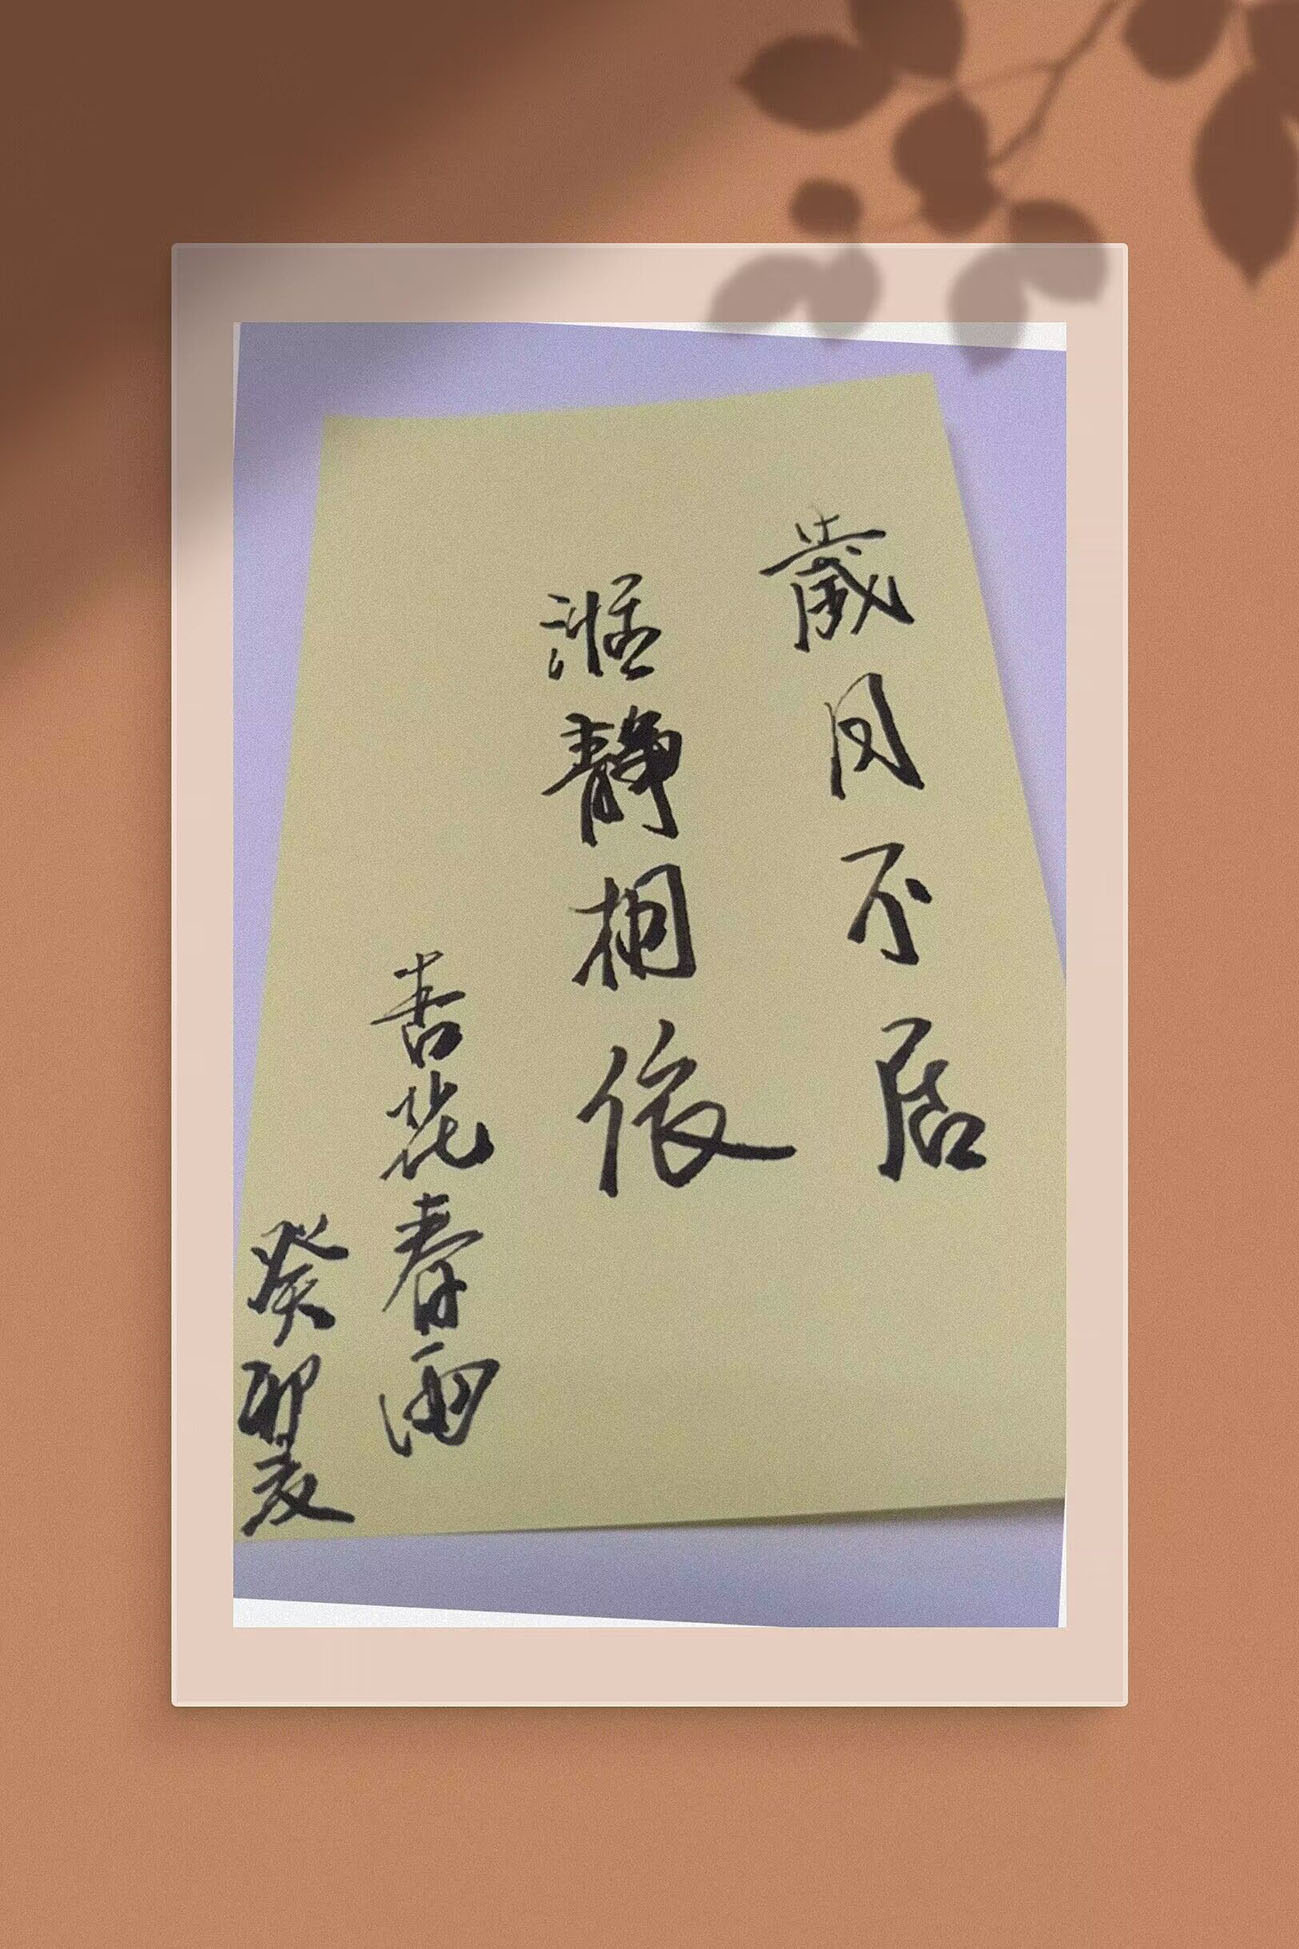 歲月不居
湉静相依
杏花春雨
癸卯夏